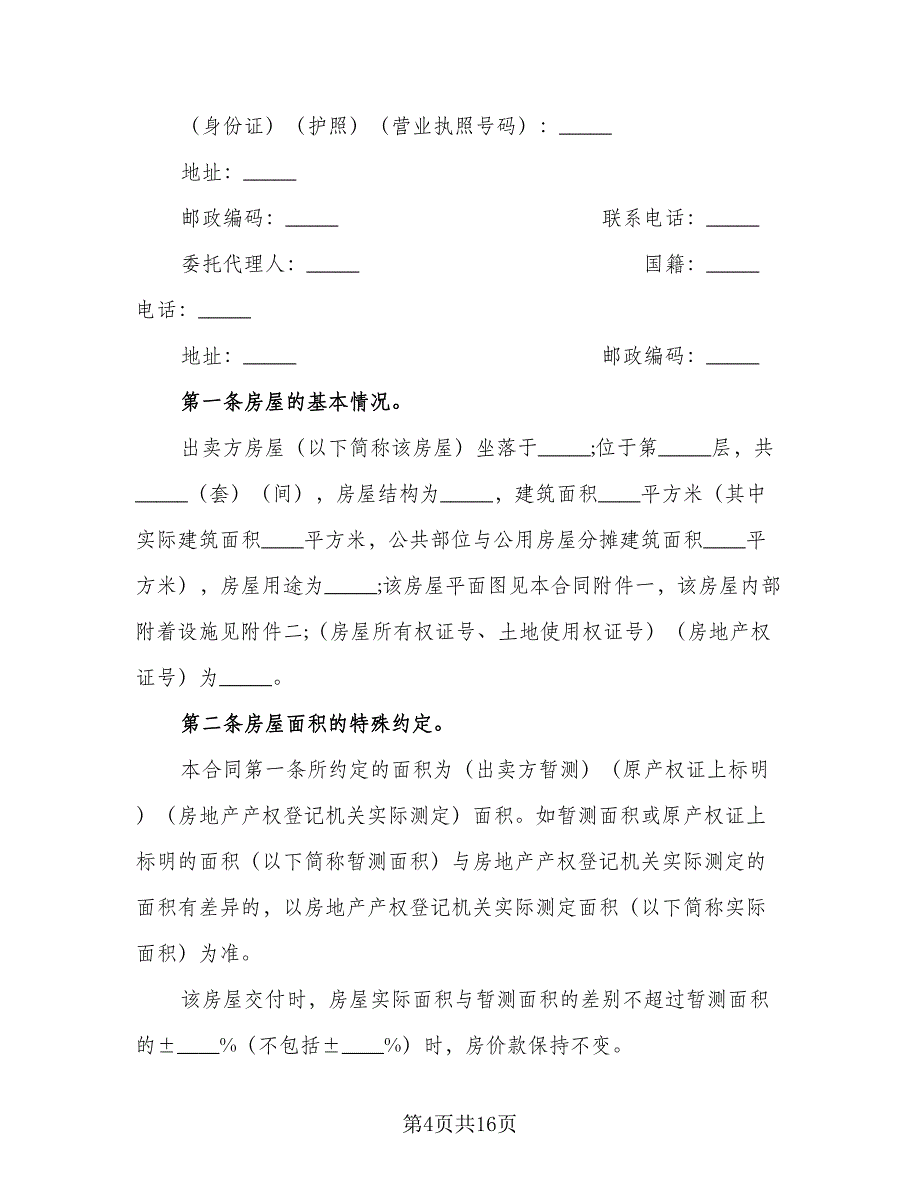 （身份证）（护照）（营业执照号码）：_____
地址：_____
邮政编码：_____ 联系电话：_____
委托代理人：_____ 国籍：_____
电话：_____
地址：_____ 邮政编码：_____
第一条房屋的基本情况。
出卖方房屋（以下简称该房屋）坐落于_____;位于第_____层，共
_____（套）（间），房屋结构为_____，建筑面积____平方米（其中
实际建筑面积____平方米，公共部位与公用房屋分摊建筑面积____平
方米），房屋用途为_____;该房屋平面图见本合同附件一，该房屋内部
附着设施见附件二;（房屋所有权证号、土地使用权证号）（房地产权
证号）为_____。
第二条房屋面积的特殊约定。
本合同第一条所约定的面积为（出卖方暂测）（原产权证上标明
）（房地产产权登记机关实际测定）面积。如暂测面积或原产权证上
标明的面积（以下简称暂测面积）与房地产产权登记机关实际测定的
面积有差异的，以房地产产权登记机关实际测定面积（以下简称实际
面积）为准。
该房屋交付时，房屋实际面积与暂测面积的差别不超过暂测面积
的±____%（不包括±____%）时，房价款保持不变。
第4页共16页